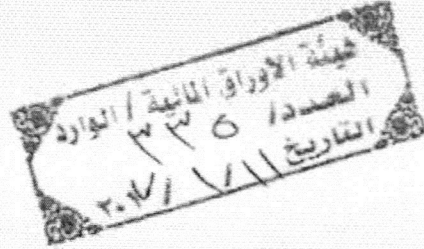 هيئة الاوراق المالية / الوارد
العدد / ٣٣٥
التاريخ ١١ / ١ / ٢٠١٧